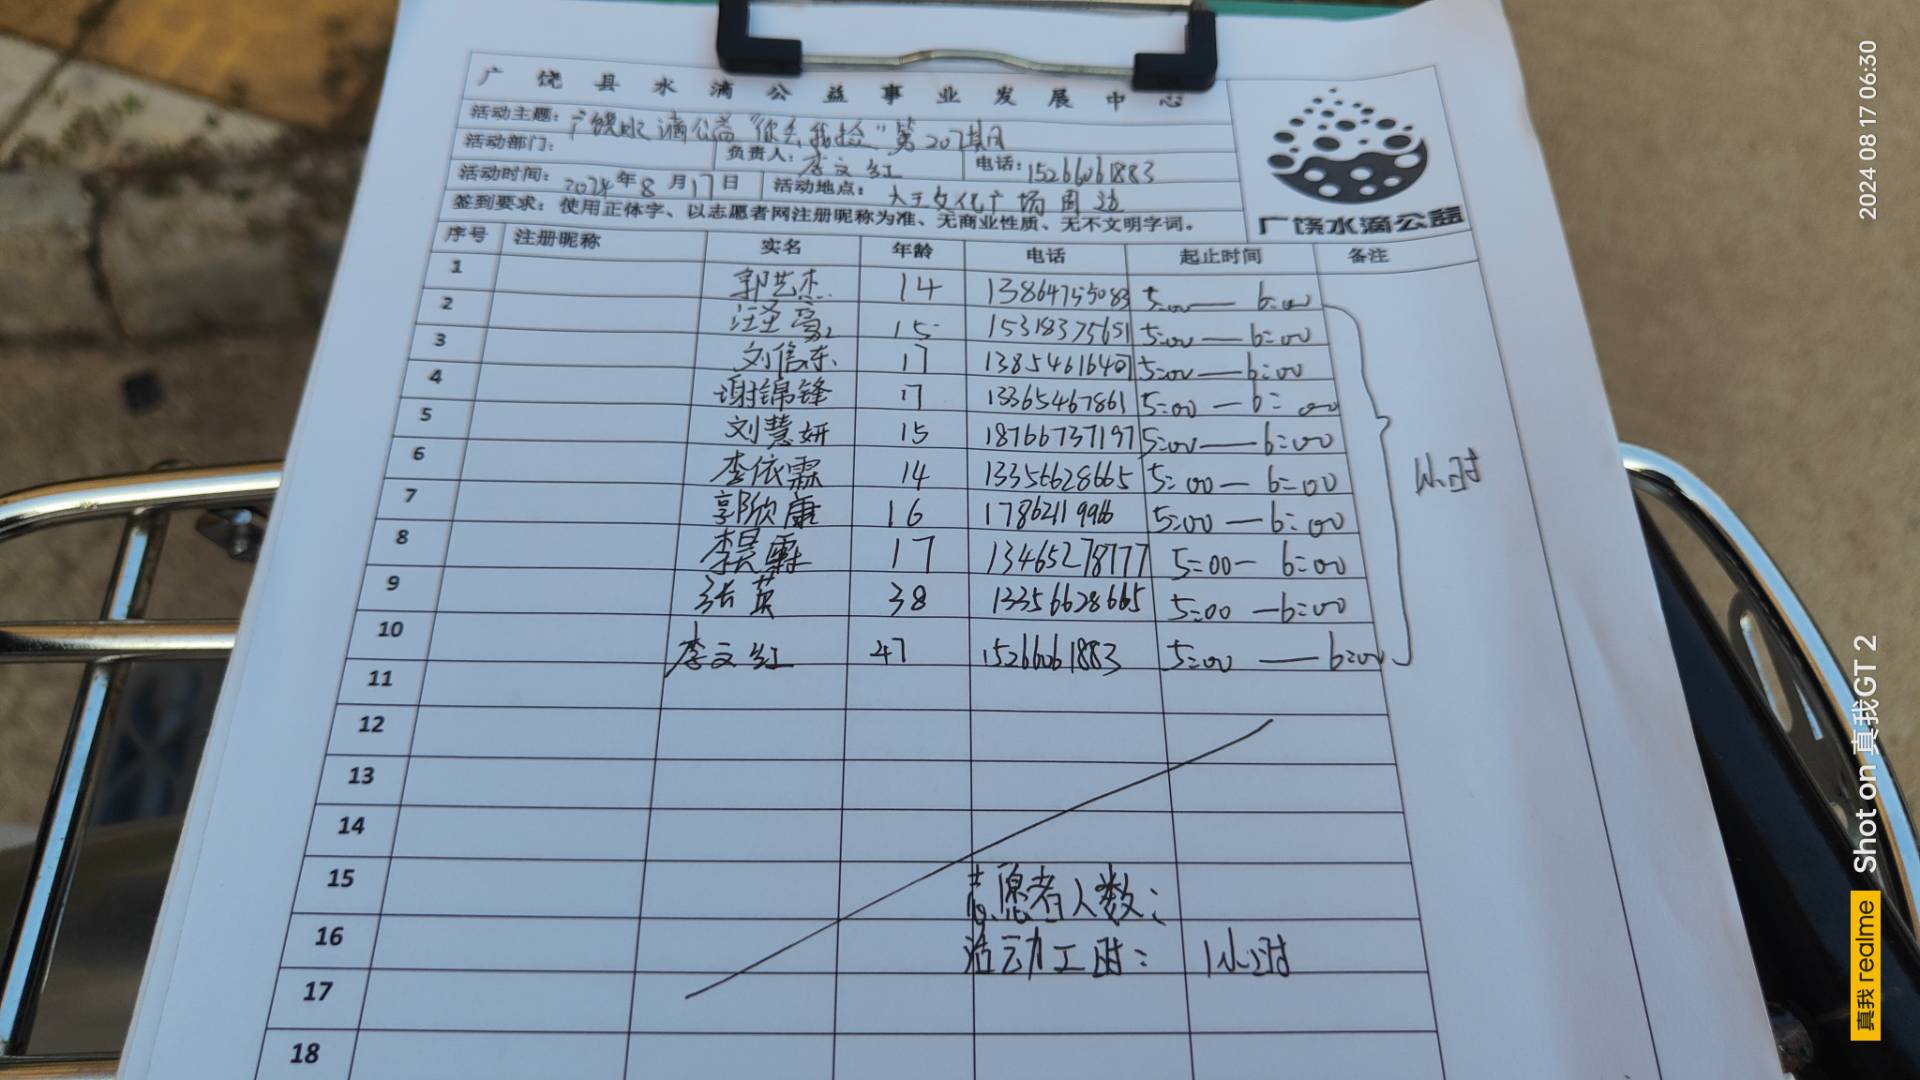 广饶县水滴公益事业发展中心
活动主题: 广饶水滴公益"你丢我捡"第207期
活动部门: 负责人: 李文红 电话: 15266061883
活动时间: 2024年8月17日 活动地点: 大王文化广场周边
签到要求: 使用正体字、以志愿者网注册昵称为准、无商业性质、无不文明字词。
广饶水滴公益
序号 注册昵称 实名 年龄 电话 起止时间 备注
1 郭艺杰 14 13864755083 5:00—6:00
2 汪圣豪 15 15318375651 5:00—6:00
3 刘信东 17 13854616401 5:00—6:00
4 谢锦锋 17 13365467861 5:00—6:00
5 刘慧妍 15 18766737197 5:00—6:00
6 李依霖 14 13356628665 5:00—6:00
7 郭欣康 16 17862119966 5:00—6:00
8 李昊霖 17 13465278777 5:00—6:00
9 张英 38 13356628665 5:00—6:00
10 李文红 47 15266061883 5:00—6:00
1小时
11
12
13
14
15 志愿者人数:
16 活动工时: 1小时
17
18
2024 08 17 06:30
Shot on 真我GT 2
真我 realme